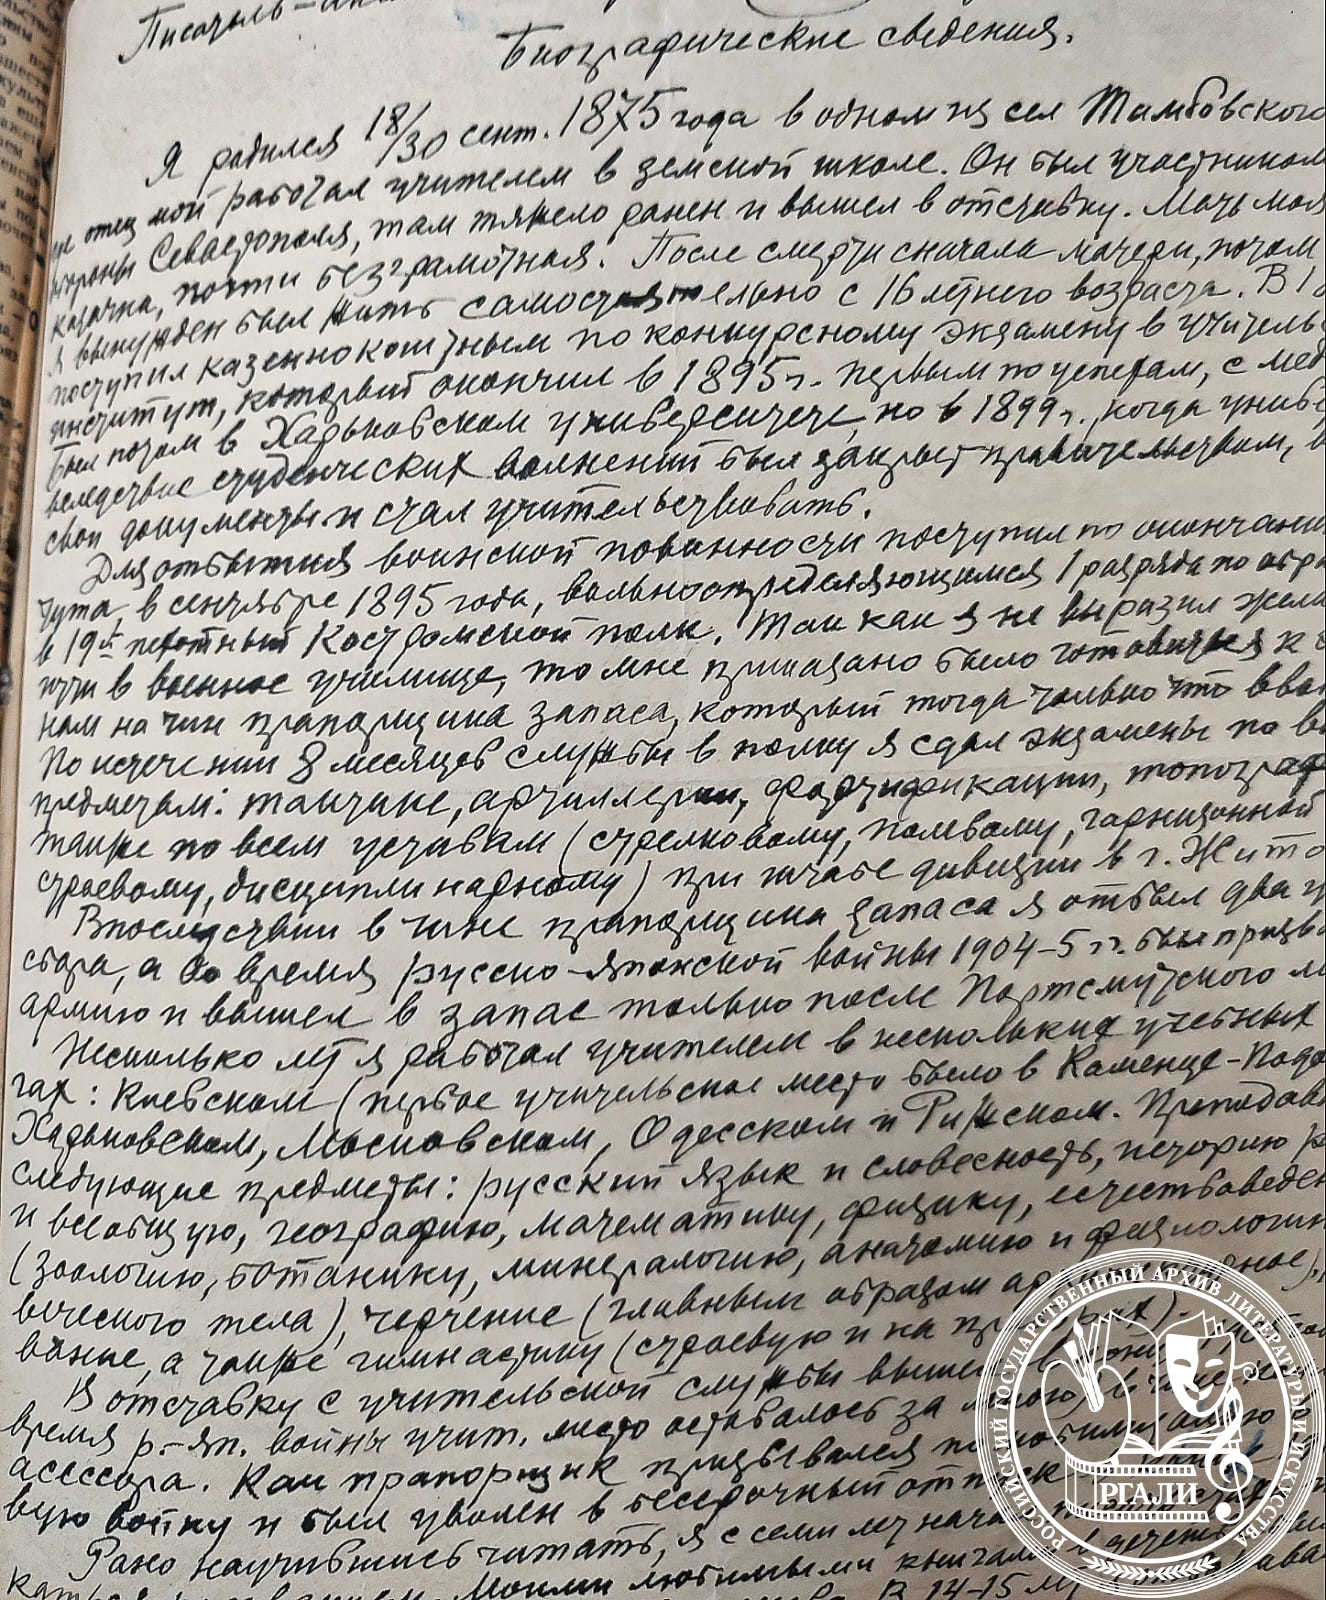 Писатель-
Биографические сведения.
Я родился 18/30 сент. 1875 года в одном из сел Тамбовского
где отец мой работал учителем в земской школе. Он был участником
обороны Севастополя, там тяжело ранен и вышел в отставку. Мать моя
казачка, почти безграмотная. После смерти сначала матери, потом
я вынужден был жить самостоятельно с 16 летнего возраста. В 1
поступил казеннокоштным по конкурсному экзамену в Учитель
институт, который окончил в 1895 г. первым по успехам, с мед
Был потом в Харьковском университете, но в 1899 г., когда униве
вследствие студенческих волнений был закрыт правительством, в
свои документы и стал учительствовать.
Для отбытия воинской повинности поступил по окончании
тута, в сентябре 1895 года, вольноопределяющимся 1 разряда по обра
в 19й пехотный Костромской полк. Так как я не выразил жела
идти в военное училище, то мне приказано было готовиться к э
нам на чин прапорщика запаса, который тогда только что вво
По истечении 8 месяцев службы в полку я сдал экзамены по в
предметам: тактике, артиллерии, фортификации, топограф
также по всем уставам (стрелковому, полевому, гарнизонной
строевому, дисциплинарному) при штабе дивизии в г. Жито
Впоследствии в чине прапорщика запаса я отбыл два у
сбора, а во время русско-японской войны 1904-5 гг. был призва
армию и вышел в запас только после Портсмутского м
Несколько лет я работал учителем в нескольких учебных
гах: Киевском (первое учительское место было в Каменце-Подо
Харьковском, Московском, Одесском и Рижском. Преподава
следующие предметы: русский язык и словесность, историю р
и всеобщую, географию, математику, физику, естествоведен
(зоологию, ботанику, минералогию, анатомию и физиологию
веческого тела), черчение (главным образом
вание, а также гимнастику (строевую и на
В отставку с учительской службы вышел в
время р.-яп. войны учит. место оставалось за мною) в чине
асессора. Как прапорщик призывался по мобилизации
вую войну и был уволен в бессрочный отпуск
Рано научившись читать, я с семи лет нача
Моими любимыми книгами
В 14-15 лет
РОССИЙСКИЙ ГОСУДАРСТВЕННЫЙ АРХИВ ЛИТЕРАТУРЫ И ИСКУССТВА
РГАЛИ